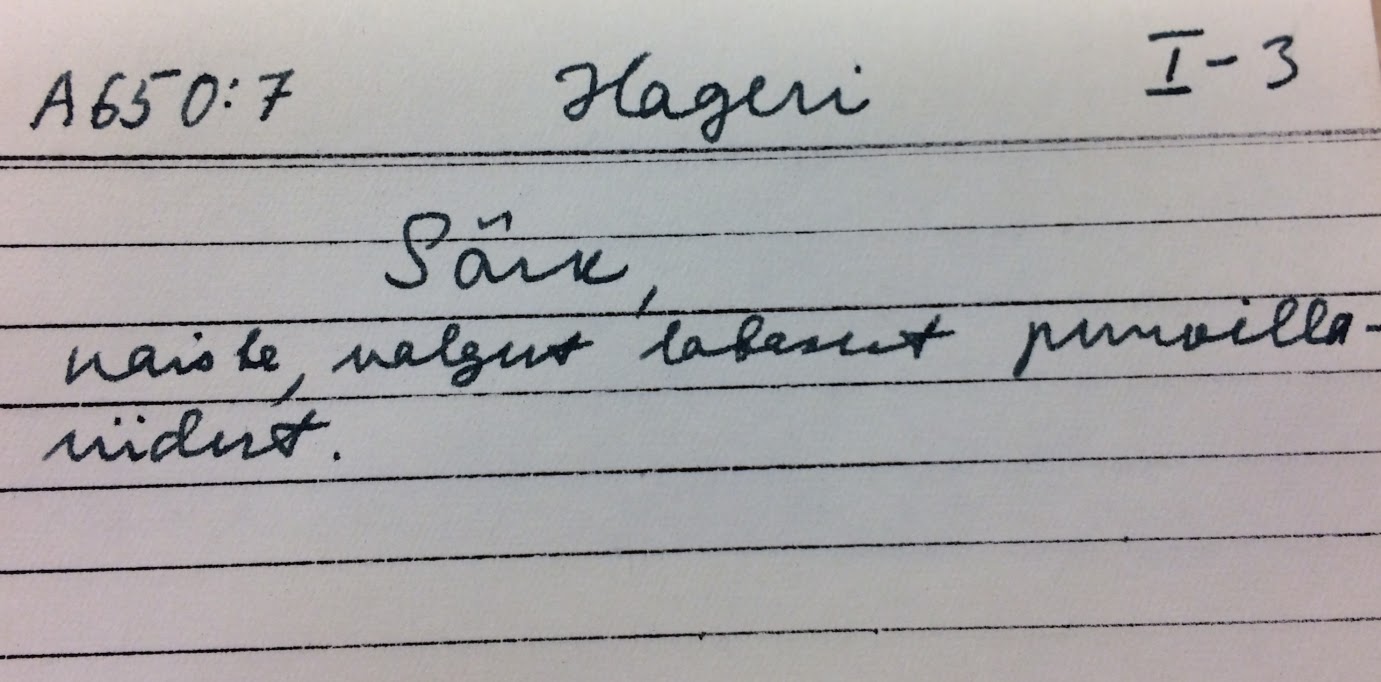 A650:7 Hageri I-3
Särk,
naiste, valgest labasest puuvilla-
riidest.